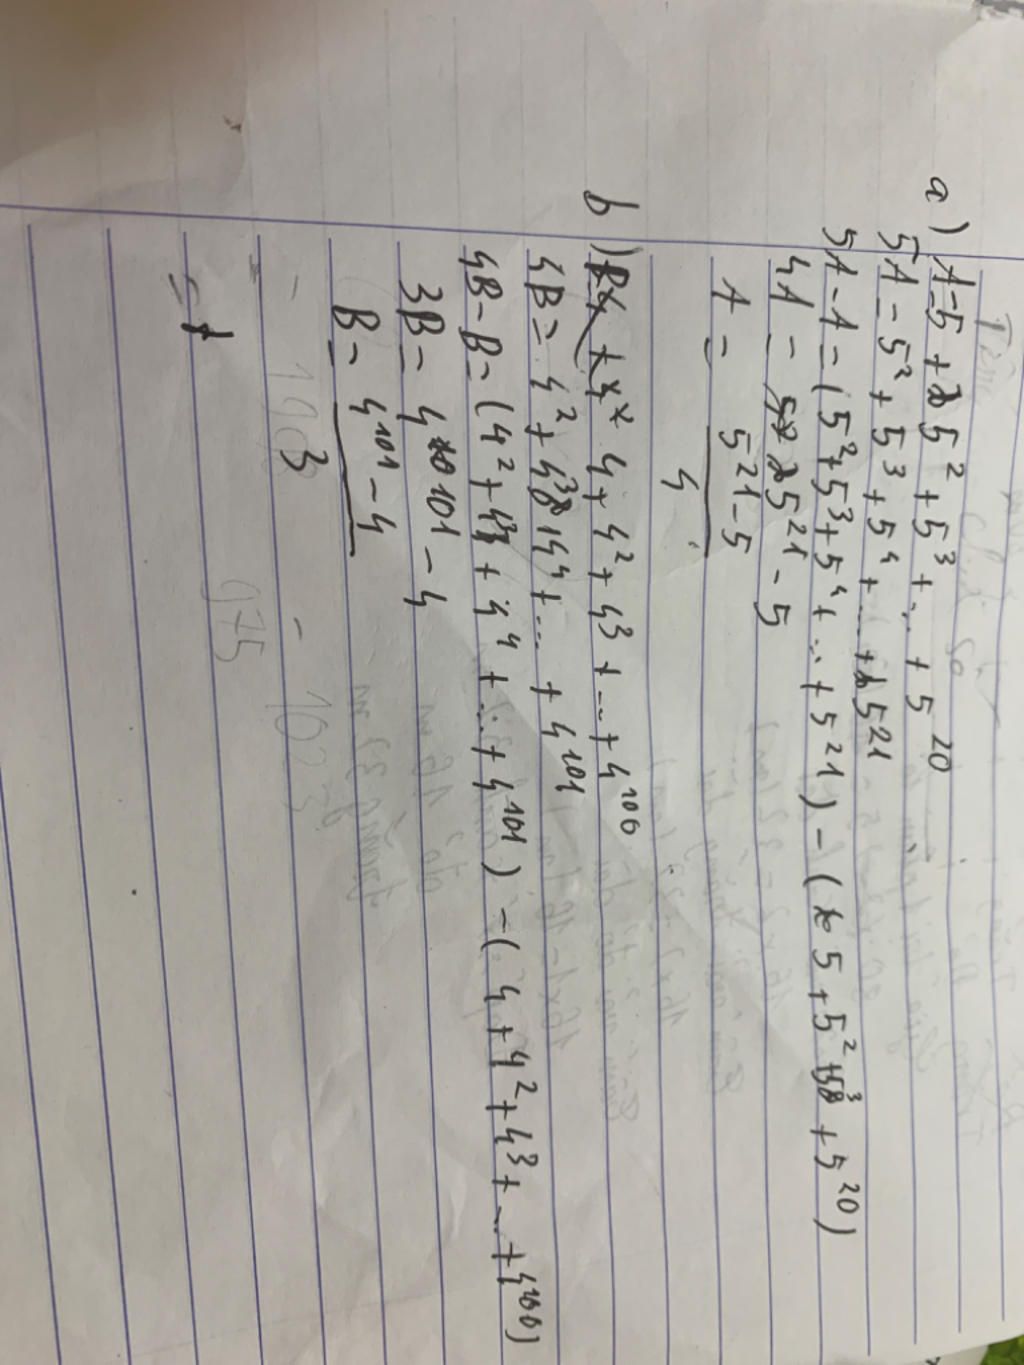 a) A = 5 + 5² + 5³ + ... + 5²⁰
5A = 5² + 5³ + 5⁴ + ... + 5²¹
5A - A = (5² + 5³ + 5⁴ + ... + 5²¹) - (5 + 5² + 5³ + 5²⁰)
4A = 5²¹ - 5
A = 5²¹ - 5
4
b) 4 + 4² + 4³ + ... + 4¹⁰⁰
4B = 4² + 4³ + 4⁴ + ... + 4¹⁰¹
4B - B = (4² + 4³ + 4⁴ + ... + 4¹⁰¹) - (4 + 4² + 4³ + ... + 4¹⁰⁰)
3B = 4¹⁰¹ - 4
B = 4¹⁰¹ - 4
3